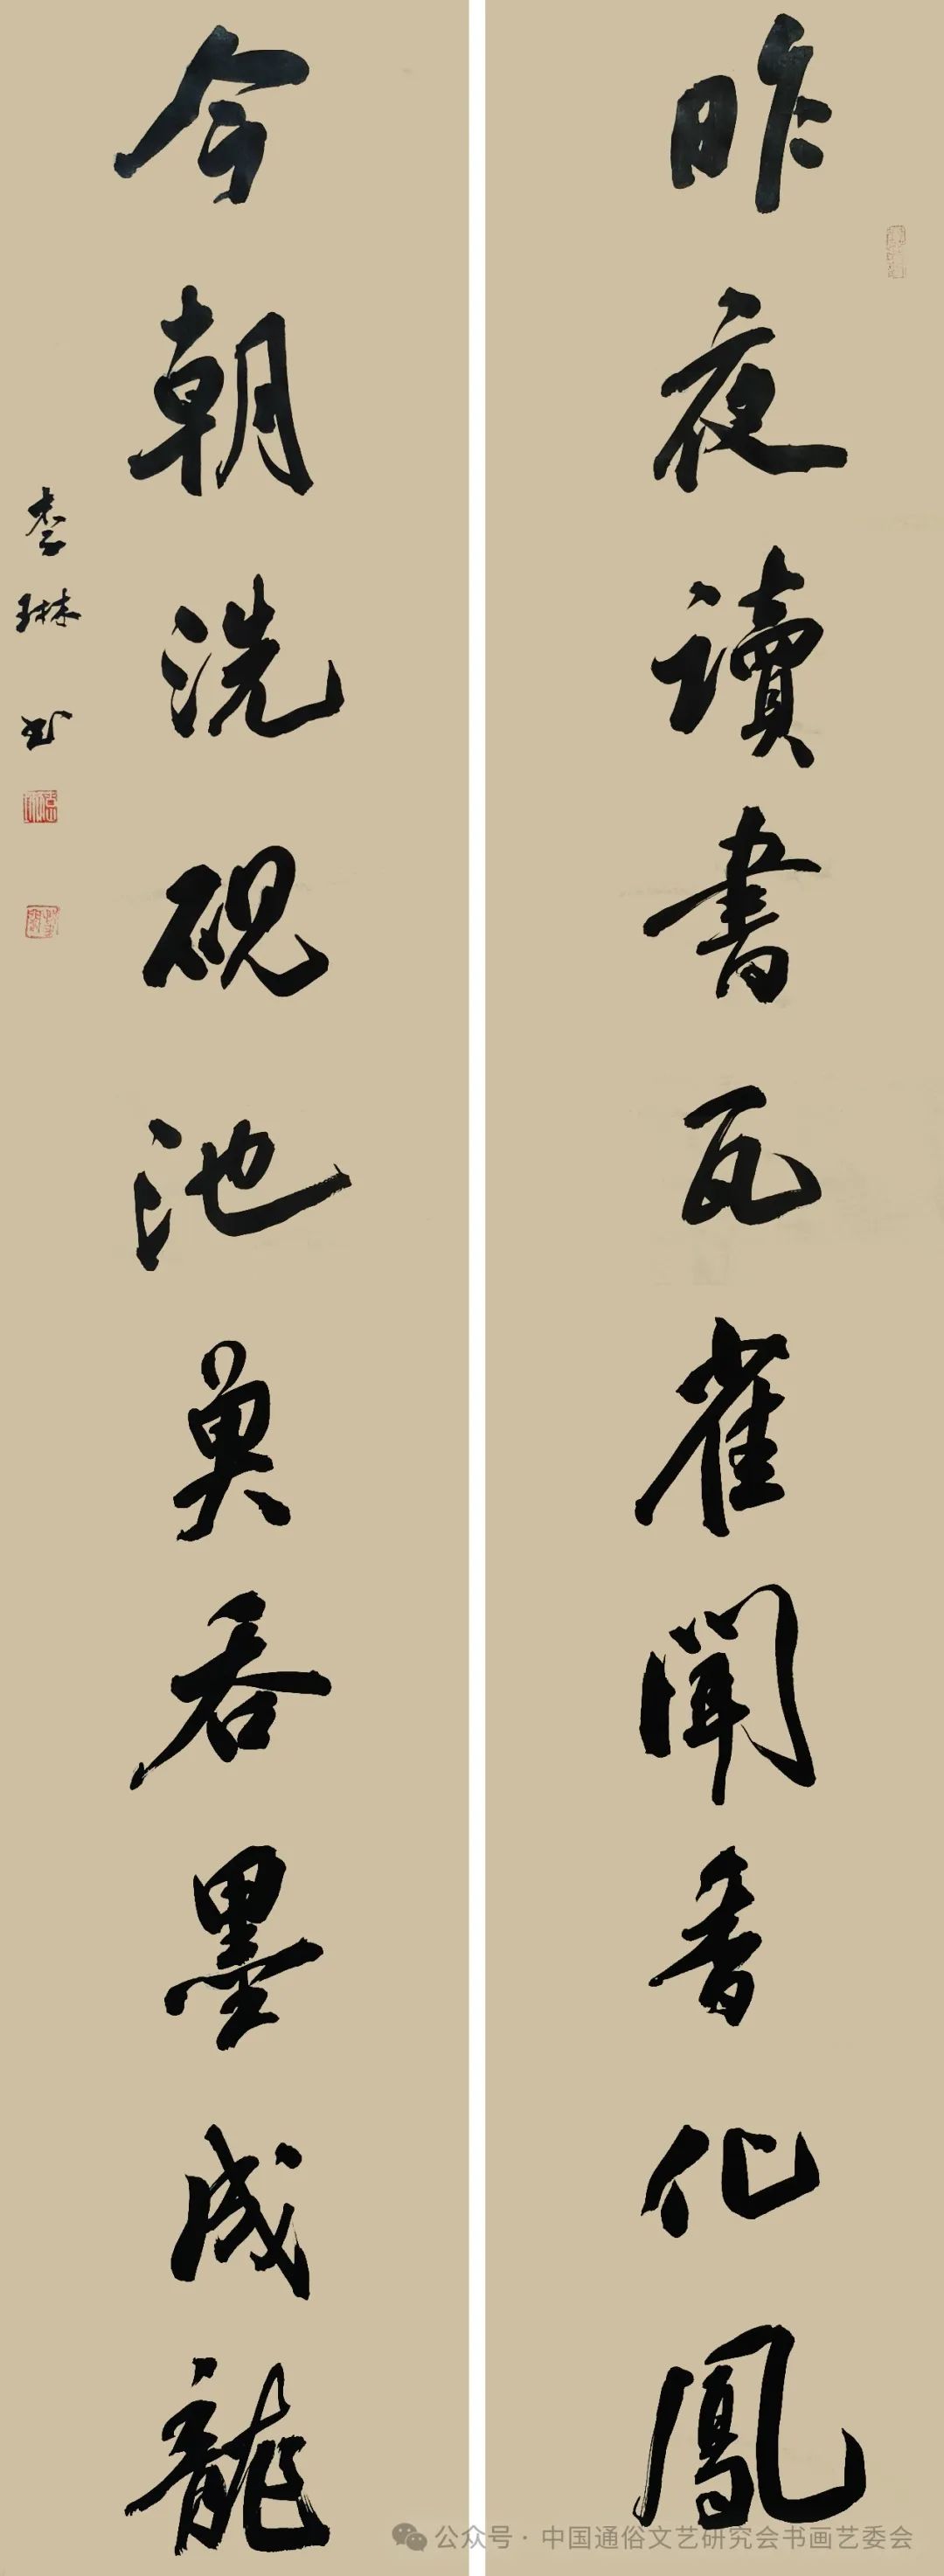 昨夜讀書瓦雀聞香化鳳
今朝洗硯池魚吞墨成龍
李琳书
公众号·中国通俗文艺研究会书画艺委会